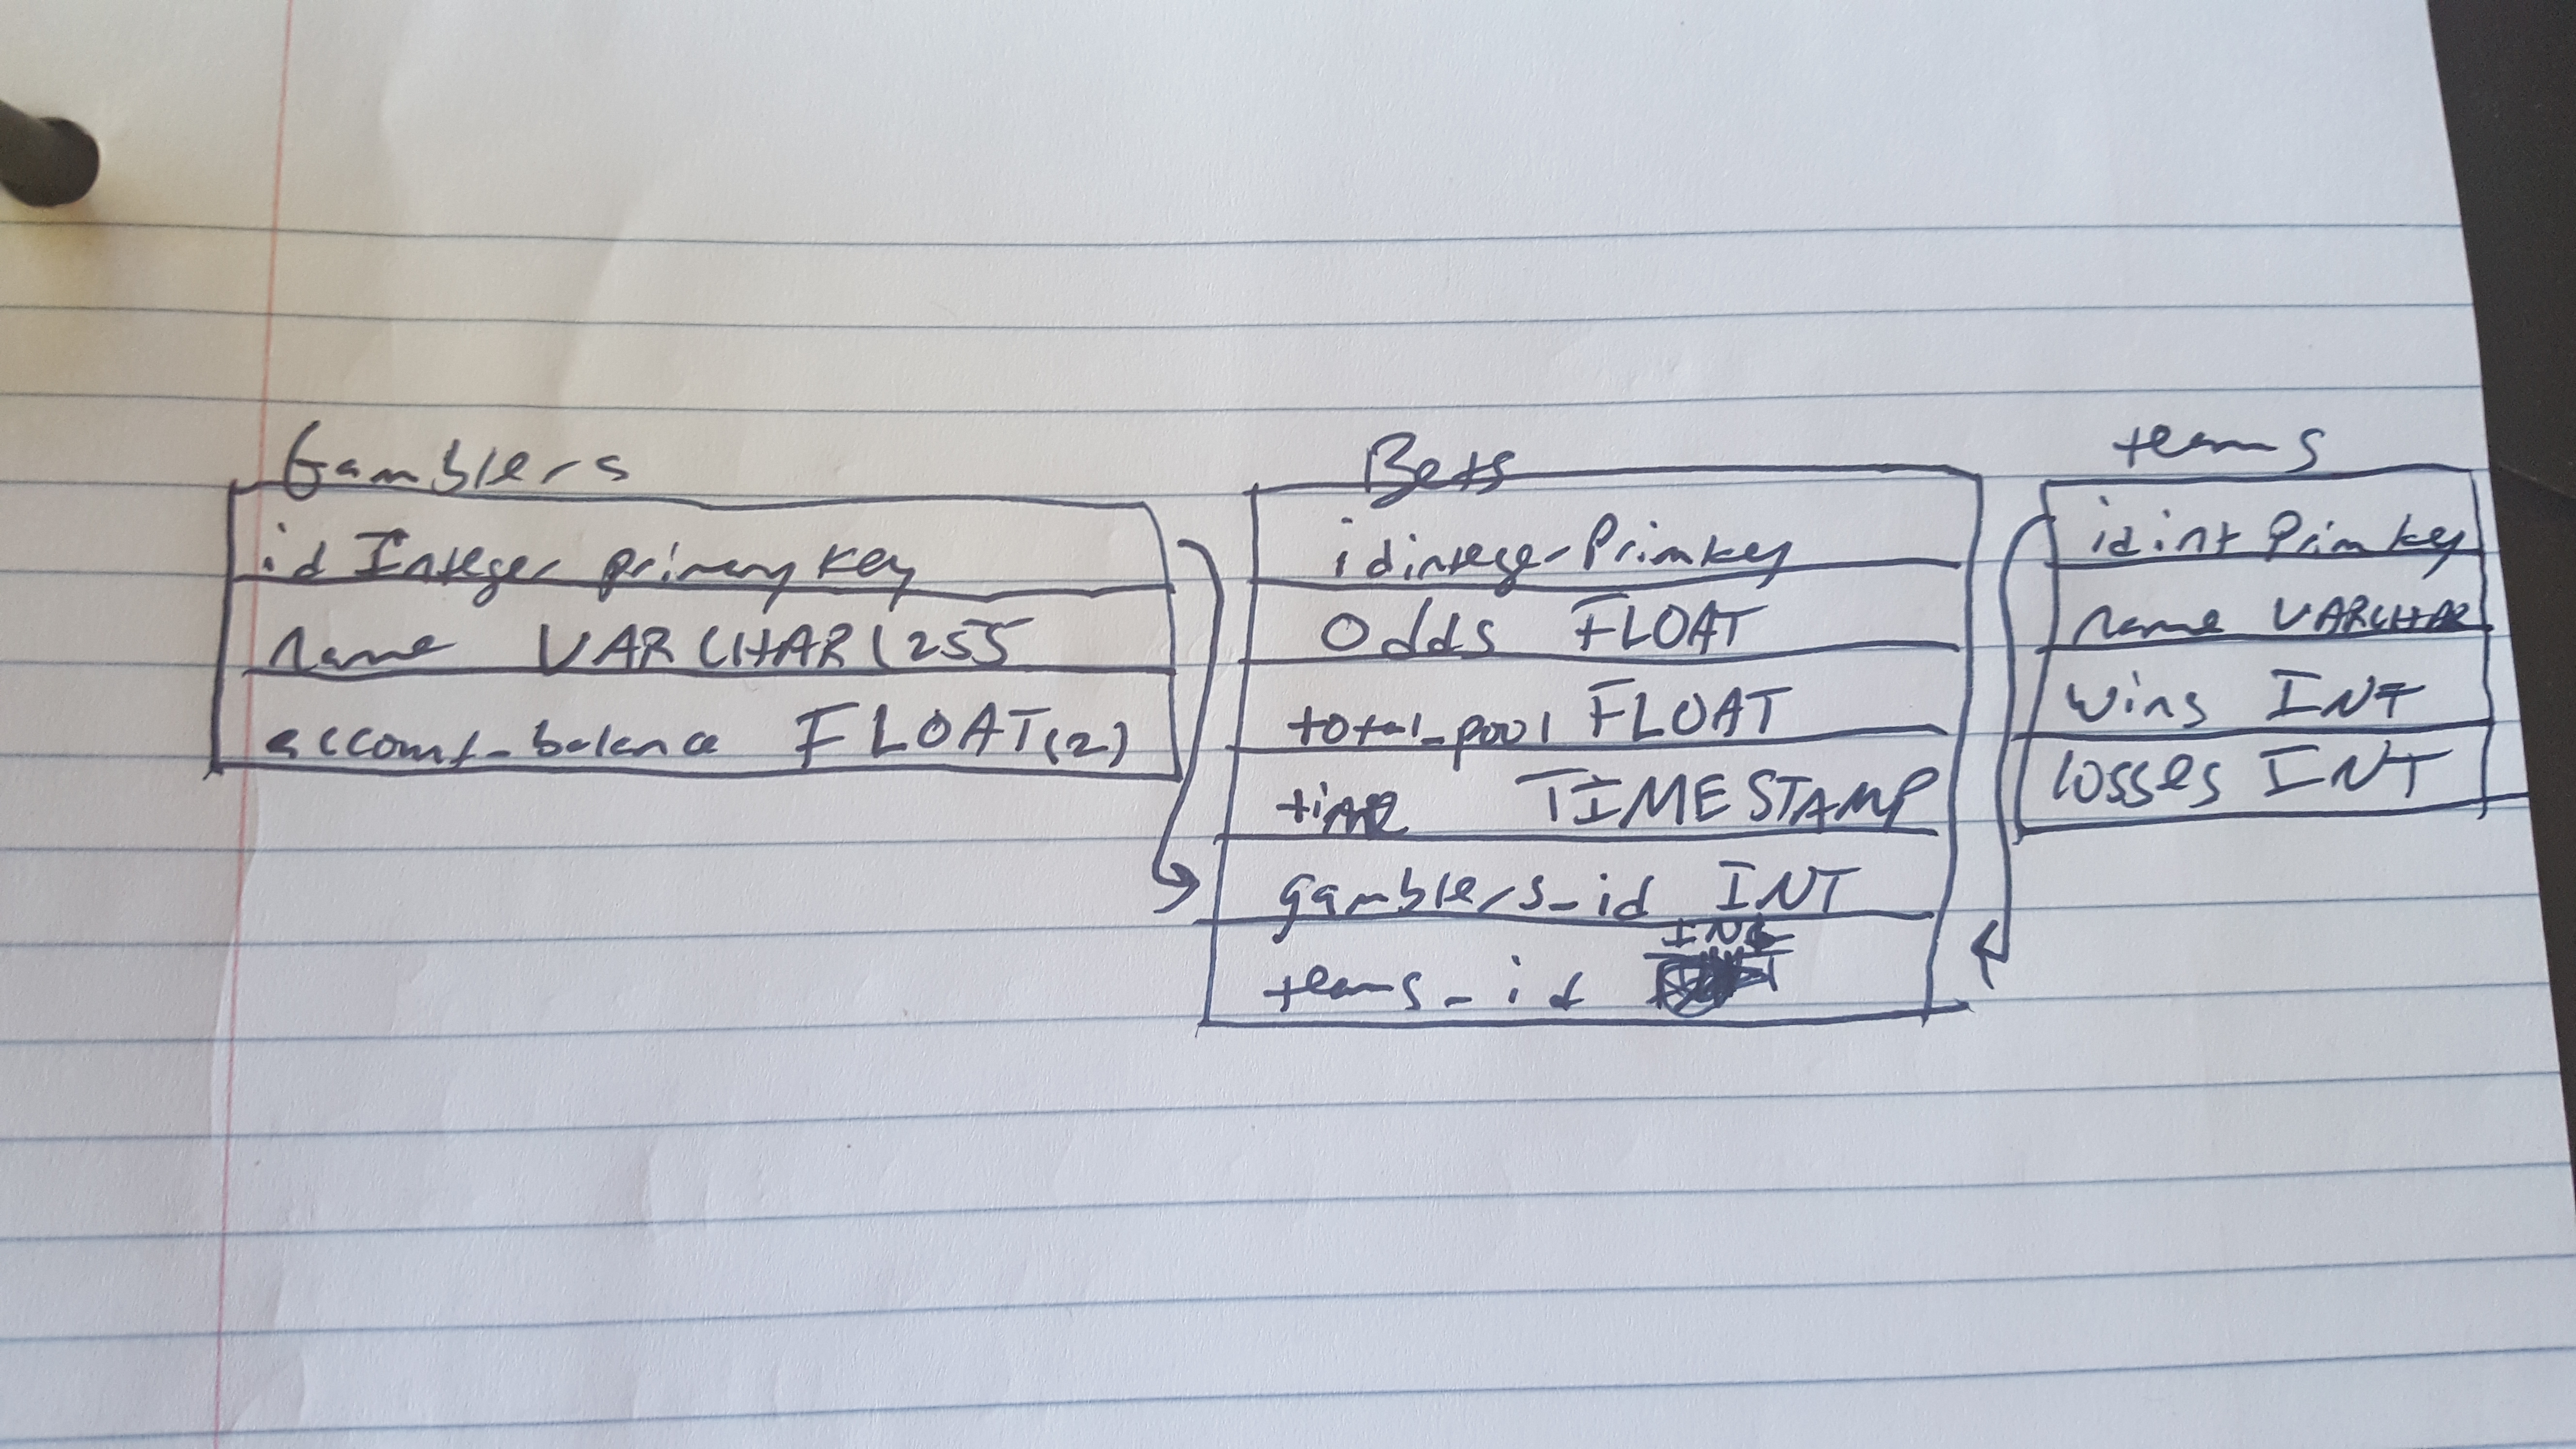 Gamblers
id Integer primary key
name VARCHAR(255
account_balance FLOAT(2)
Bets
id integer Prim key
Odds FLOAT
total_pool FLOAT
time TIMESTAMP
gamblers_id INT
teams_id INT
teams
id int Prim key
name VARCHAR
wins INT
losses INT